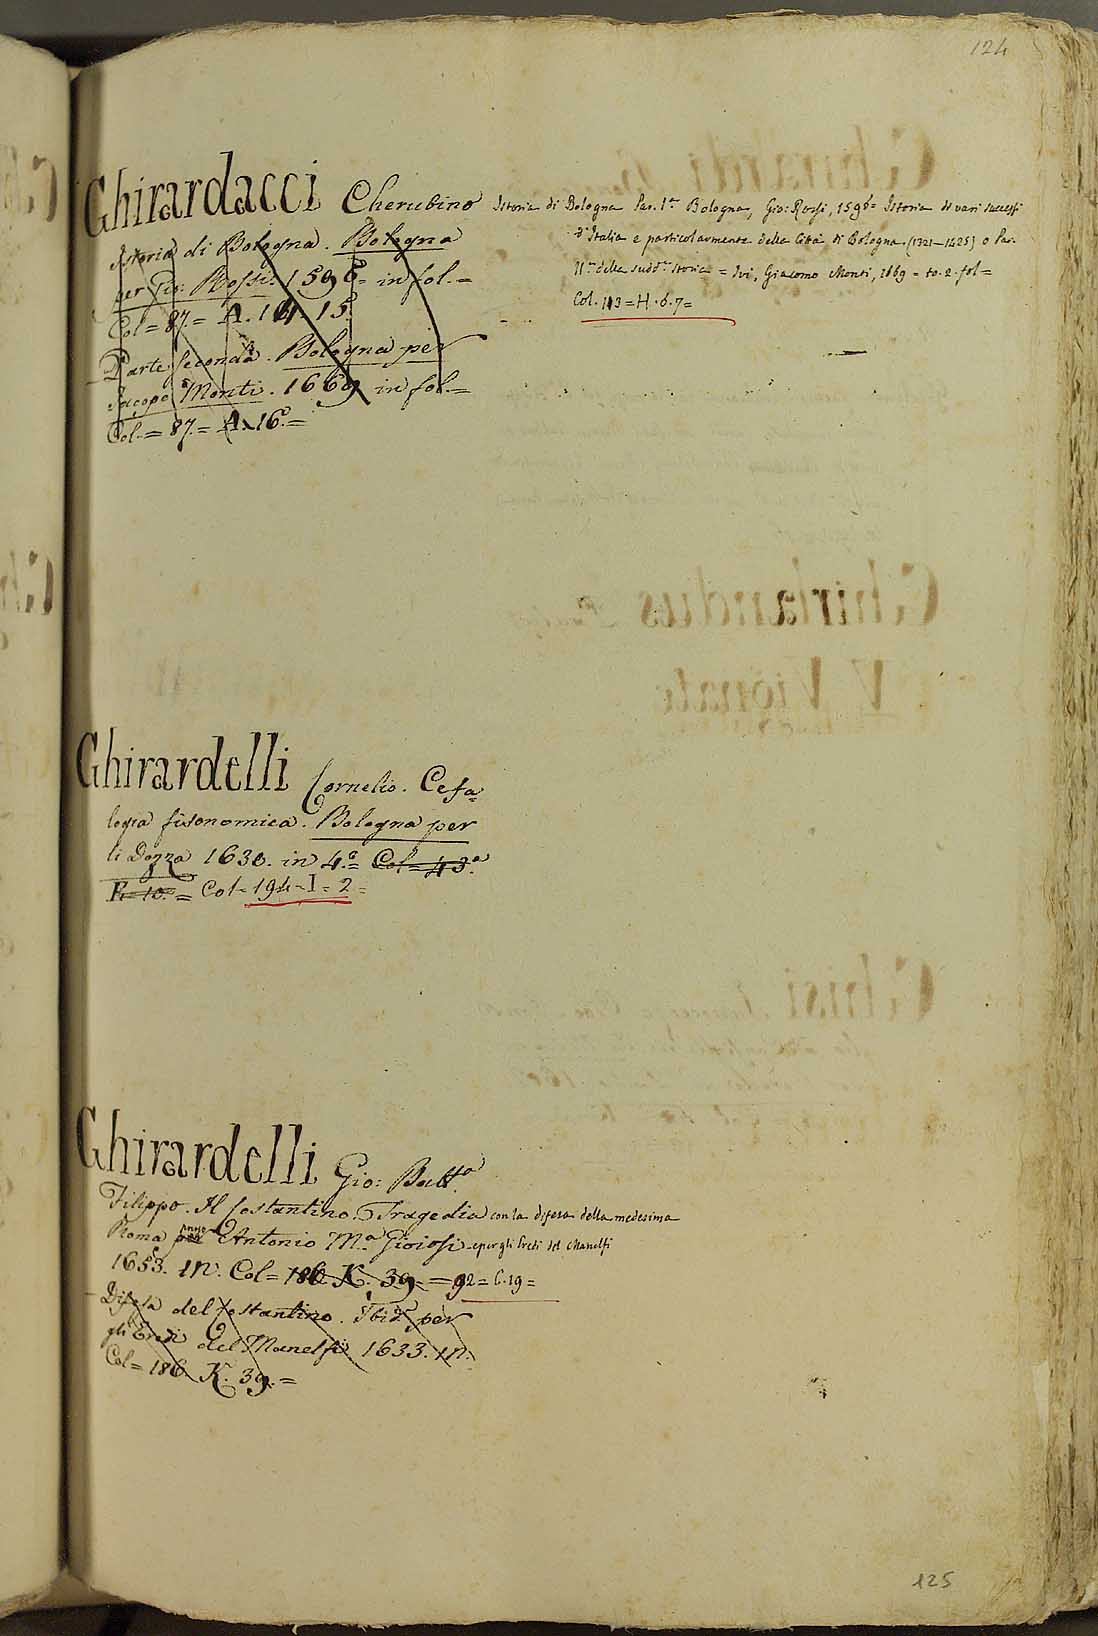 124
Ghirardacci Cherubino Istoria di Bologna Par. I.ª Bologna, Gio: Rossi, 1596= Istoria di vari successi
d'Italia e particolarmente della Città di Bologna (1321-1425) o Par.
II.ª della sudd.ª storia = Ivi, Giacomo Monti, 1669 = to. 2. fol=
Col. 113=H.6.7=
Istoria di Bologna. Bologna
per Gio: Rossi. 1596= in fol.=
Col= 87.= A. 14. 15.
Parte seconda. Bologna per
Jacopo Monti. 1669 in fol.=
Col.= 87.= A. 16.=
Ghirardelli Cornelio. Cefa=
logia fisonomica. Bologna per
li Dozza 1630. in 4.º= Col= 43.ª
10.= Col= 194=I=2=
Ghirardelli Gio: Batt.ª
Filippo. Il Costantino. Tragedia con la difesa della medesima
Roma per Antonio M.ª Gioiosi e per gli Eredi del Manelfi
1653. in. Col= 186. K. 39.= 92= C.19=
Difesa del Costantino. Ibid. per
gli Eredi del Manelfi 1633. in.
Col= 186. K. 39.=
125